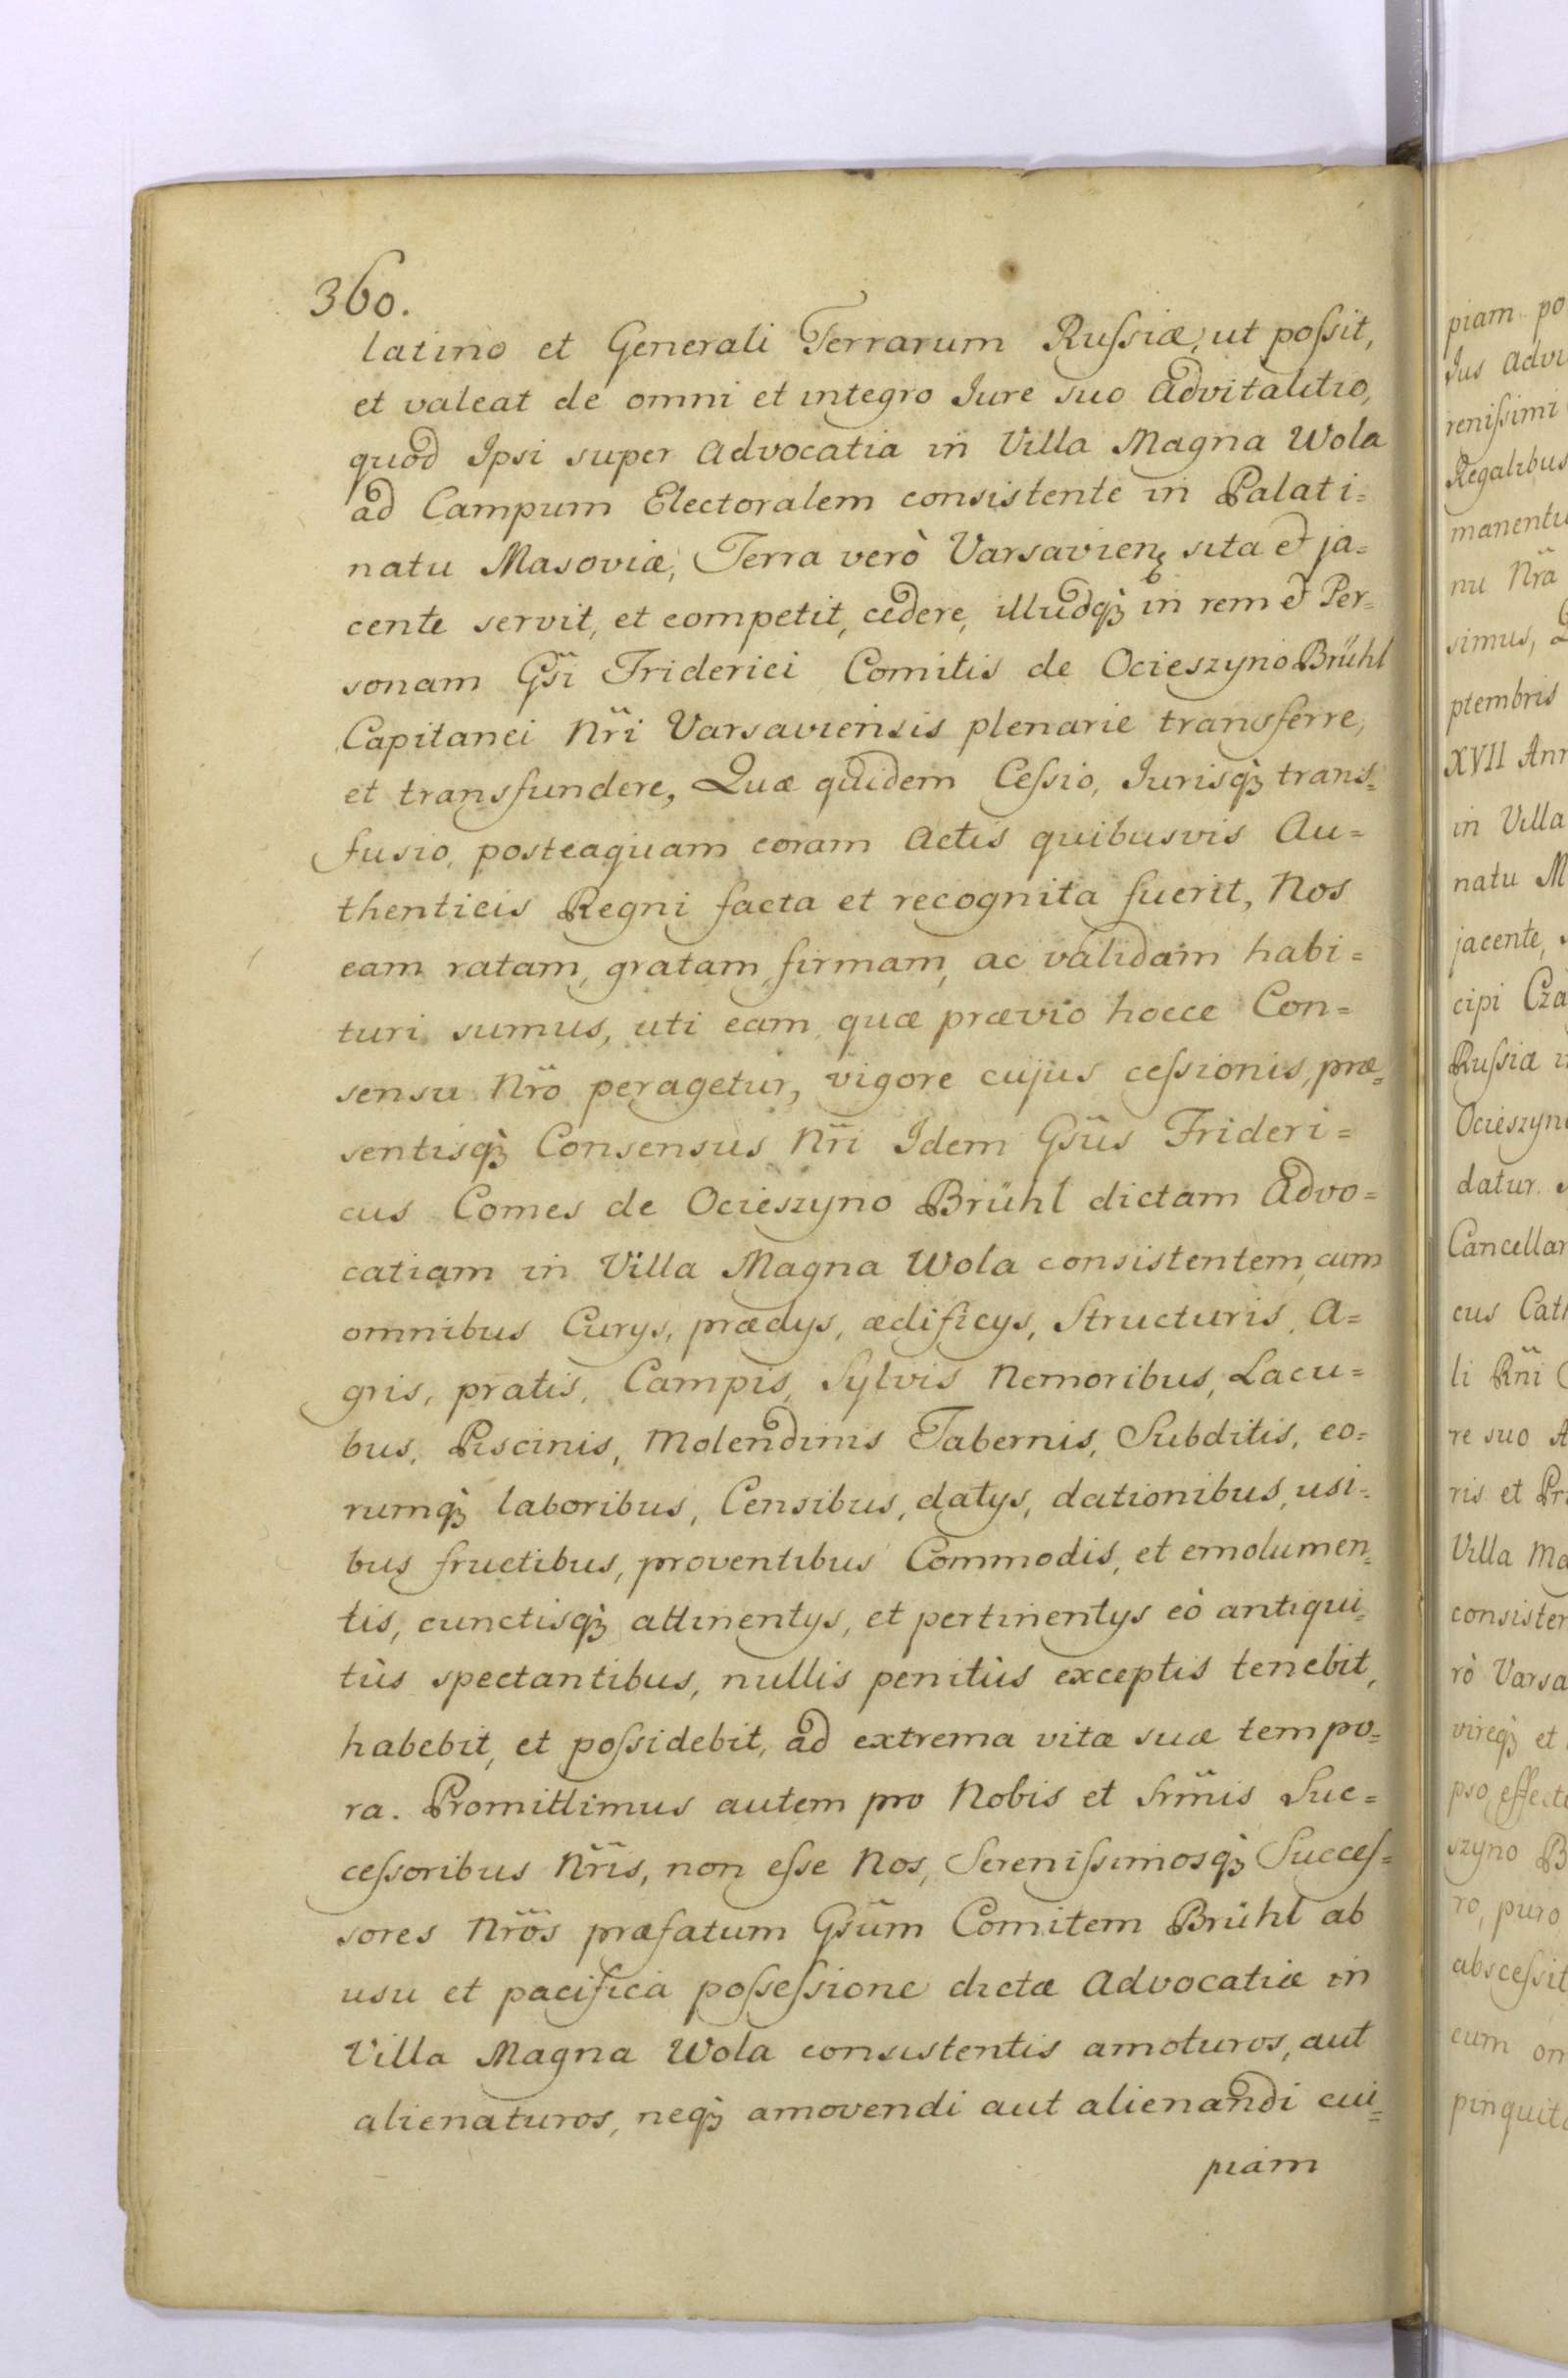 360.
latino et Generali Terrarum Rußiæ, ut poßit,
et valeat de omni et integro Iure suo advitalitio,
quod Ipsi super advocatia in Villa Magna Wola
ad Campum Electoralem consistente in Palati=
natu Masoviæ, Terra verò Varsavien: sita et ja=
cente servit, et competit, cedere, illudq̀ꝫ in rem et Per=
sonam Gsi Friderici Comitis de Ocieszyno Brühl
Capitanei Nri Varsaviensis plenarie transferre,
et transfundere, Quæ quidem Ceßio, Jurisq̀ꝫ trans=
fusio, posteaquam coram actis quibusvis Au=
thenticis Regni facta et recognita fuerit, Nos
eam ratam, gratam, firmam, ac validam habi=
turi sumus, uti eam quæ prævio hocce Con=
sensu Nro peragetur, vigore cujus ceßionis, præ=
sentisq̀ꝫ Consensûs Nri Idem Gsus Frideri=
cus Comes de Ocieszyno Brühl dictam advo=
catiam in Villa Magna Wola consistentem, cum
omnibus Curys, prædys, ædificys, Structuris, A=
gris, pratis, Campis, Sylvis Nemoribus, Lacu=
bus, Piscinis, Molendinis Tabernis, Subditis, eo=
rumq̀ꝫ laboribus, Censibus, datys, dationibus, usi=
bus fructibus, proventibus Commodis, et emolumen=
tis, cunctisq̀ꝫ attinentys, et pertinentys eò antiqui=
tùs spectantibus, nullis penitùs exceptis tenebit,
habebit, et poßidebit, ad extrema vitæ suæ tempo=
ra. Promittimus autem pro Nobis et Srmis Suc=
ceßoribus Nris, non eße Nos, Serenißimosq̀ꝫ Succeſ=
sores Nros præfatum Gsum Comitem Brühl ab
usu et pacifica poßeßione dictæ advocatiæ in
Villa Magna Wola consistentis amoturos, aut
alienaturos, neq̀ꝫ amovendi aut alienandi cui=
piam
piam po
Jus advi
renißimi
Regalibus
manentu
nu Nra
simus,
ptembris
XVII Ann
in Villa
natu M
jacente,
cipi Cza
Rußiæ
Ocieszyn
datur.
Cancellar
cus Cath
li Rni
re suo A
ris et Pr
Villa Ma
consisten
rò Varsa
vireq̀ꝫ et
pso effect
szyno B
ro, puro
absceßit
cum om
pinquit